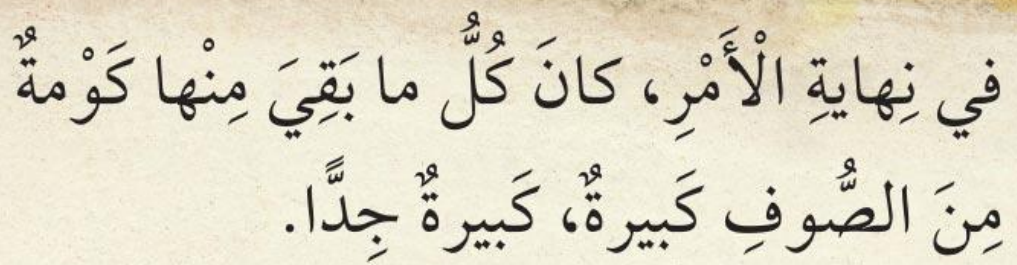 في نِهايةِ الْأَمْرِ، كانَ كُلُّ ما بَقِيَ مِنْها كَوْمةٌ
مِنَ الصُّوفِ كَبيرةٌ، كَبيرةٌ جِدًّا.